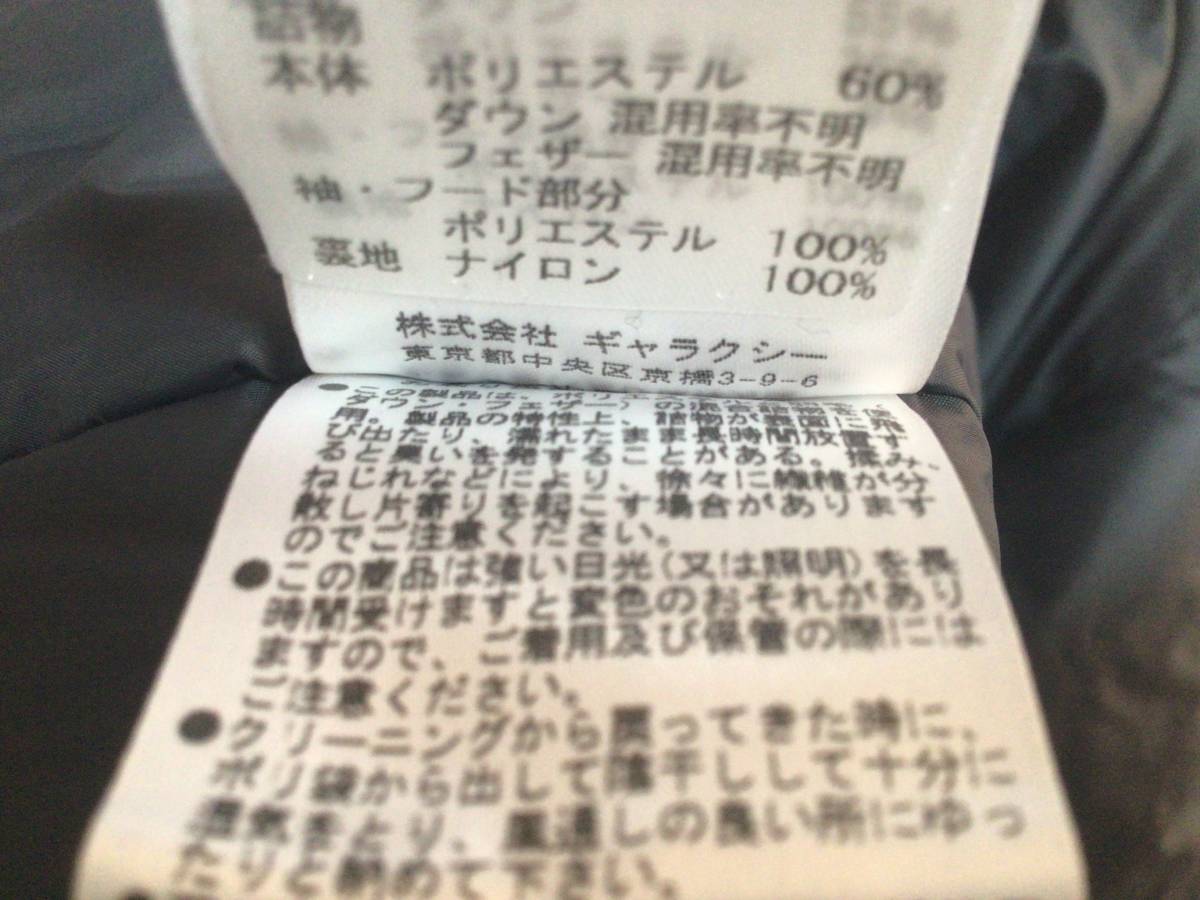 詰物
本体 ポリエステル 60%
ダウン 混用率不明
フェザー 混用率不明
袖・フード部分
ポリエステル 100%
裏地 ナイロン 100%
株式会社 ギャラクシー
東京都中央区京橋3-9-6
用。製品の特性上、詰物が表面に飛
び出たり、濡れたまま長時間放置す
ると臭いを発することがある。揉み、
ねじれなどにより、徐々に繊維が分
散し片寄りを起こす場合があります
のでご注意ください。
●この商品は強い日光(又は照明)を長
時間受けますと変色のおそれがあり
ますので、ご着用及び保管の際には
ご注意ください。
●クリーニングから戻ってきた時に、
ポリ袋から出して陰干しして十分に
湿気をとり、風通しの良い所にゆっ
たりと納めて下さい。